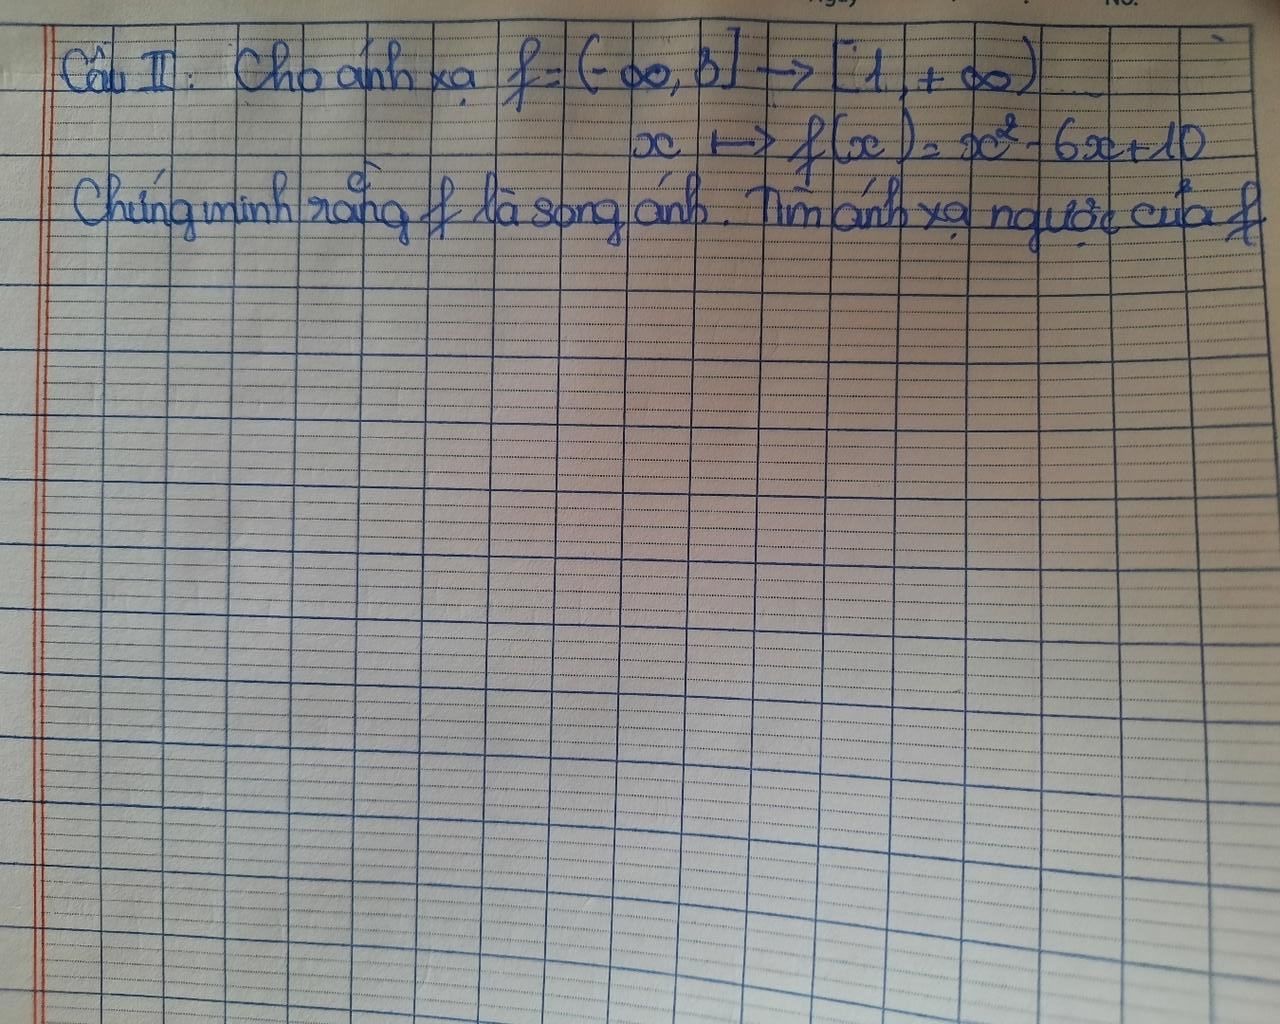 Câu II: Cho ánh xạ f = (-∞, 3] → [1, +∞)
x ↦ f(x) = x² - 6x + 10
Chứng minh rằng f là song ánh. Tìm ánh xạ ngược của f